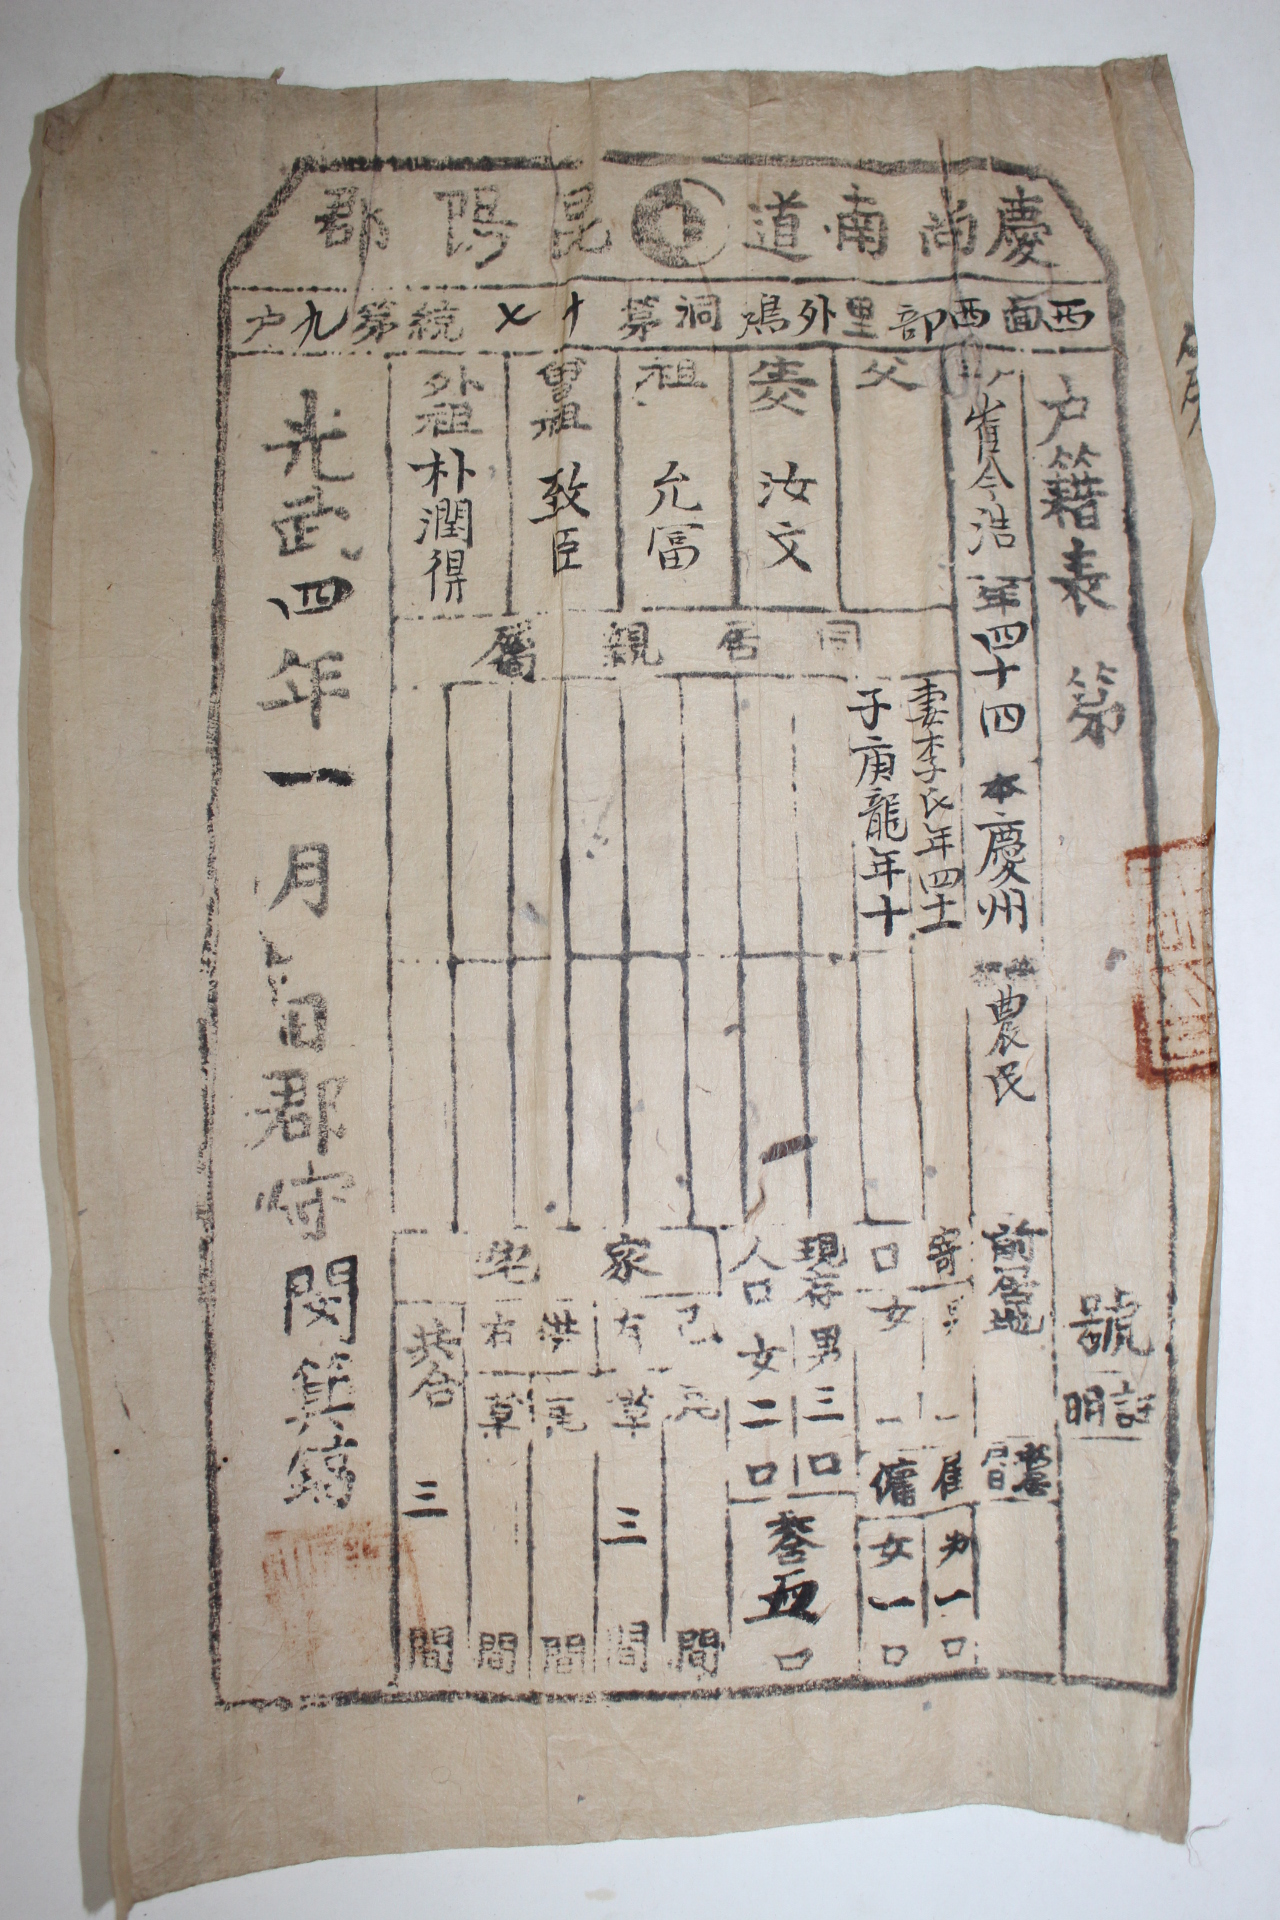 慶尚南道 昆陽郡
西面西部里外鳰洞第十七統第九戶
戶籍表 第 號
註明
崔今浩
年四十四
本慶州
農民
前居地
父
養父 汝文
祖 允富
曾祖 致臣
外祖 朴潤得
同居親屬
妻李氏年四十一
子庚龍年十
寄口 男 女
雇傭 男一口 女一口
現存 男三口
人口 女二口
叅五口
家宅
己有 瓦 間
草 三間
借有 瓦 間
草 間
共合 三間
光武四年一月 日郡守閔箕鎬